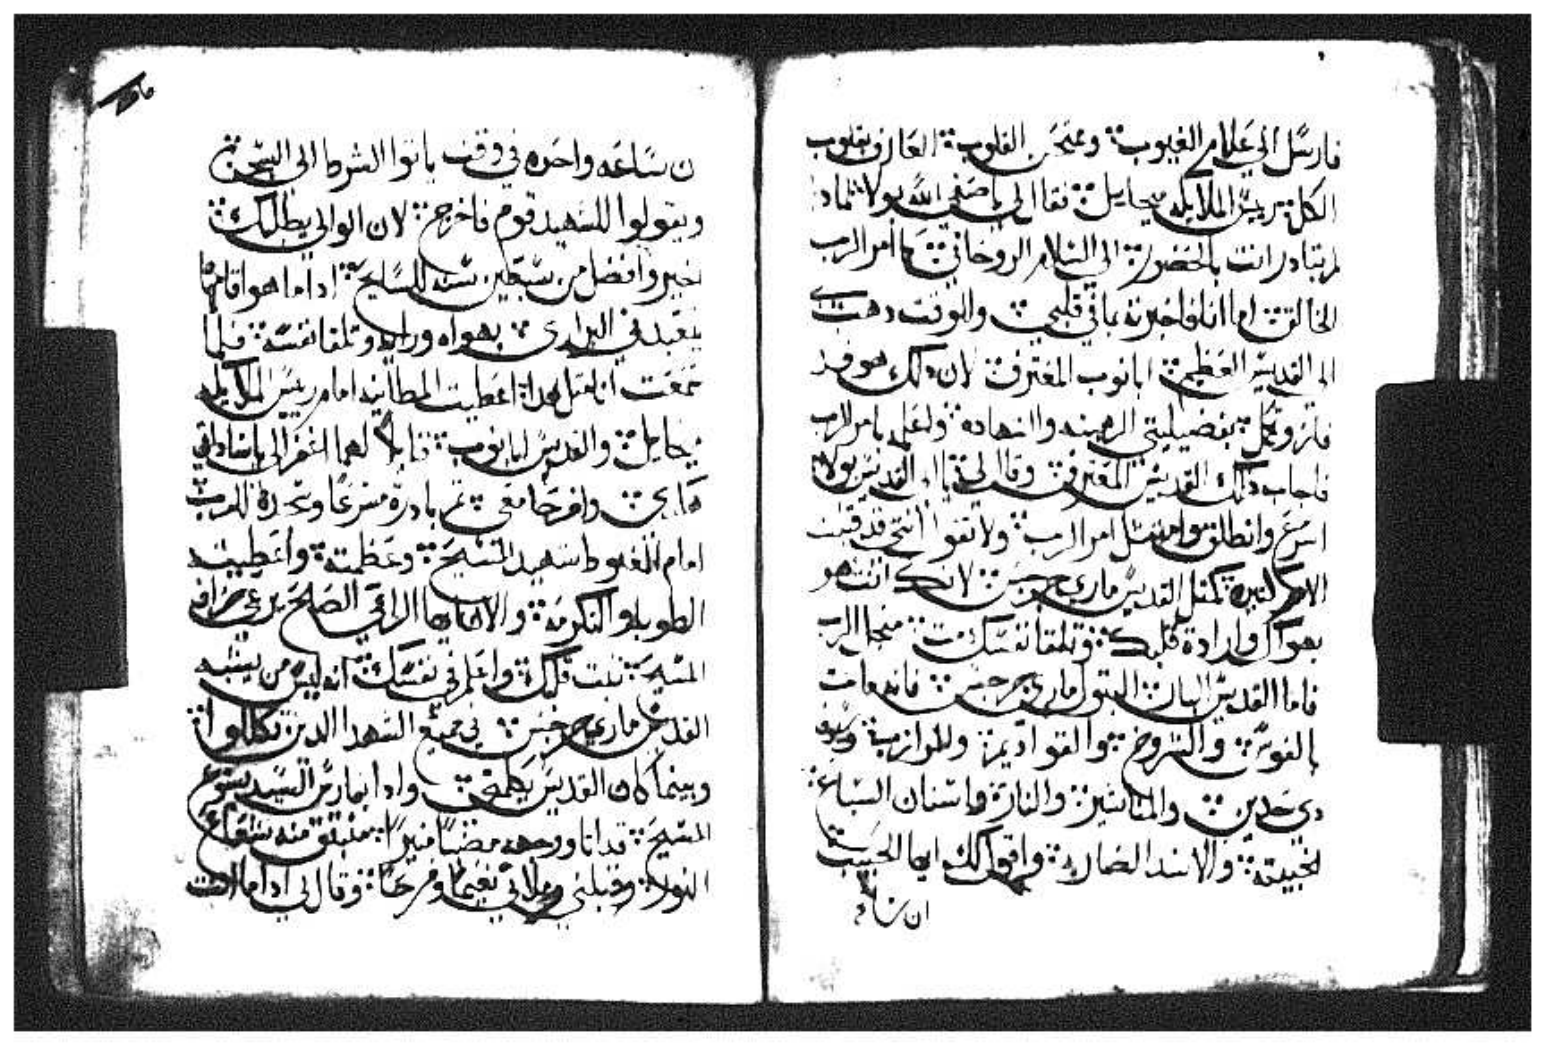 فارسل الي علام الغيوب وممتحن القلوب العارف بقلوب
الكل رييس الملايكه ميخاييل فقال لي ياصفي الله بولا لماذا
لم تبادر انت بالحضور الي السلام الروحاني كما امر الرب
الخالق اما انا فاخبرته بما في قلبي وللوقت دهبت
الى القديس العظيم ابانوب المعترف لان دلك هو قد
فاز وتكمل بفضيلتي الرهبنه والشهاده ولعلمه بامر الرب
فاجاب دلك القديس المعترف وقال لي يا القديس بولا
اسرع وانطلق وامتثل امر الرب ولا تقول انني قد قبلت
الام كتيره كمثل القديس ماري جرجس لانك انت هو
بهواك وارادة قلبك وتلقا نفسك من اجل الرب
فاما القديس البار البتول ماري جرجس فانه مات
بالقوس والشروخ والقواديم والموازيب وسيوف
دي حدين والمناشير والنار واسنان السباع
الخبيته والاسد الضاريه واقول لك ايها الحبيب
ان
ن ساعه واحده في وقت ياتوا الشرط الى السجن
ويقولوا للشهيد قوم فاخرج لان الوالي يطلبك
اخير وافضل من سبعين سنه للسايح ادا ما هو اقام
يتعبد في البراري بهواه وراده وتلقا نفسه فلما
سمعت انا مثل هدا اعطيت المطانيه امام رييس الملايكه
ميخاييل والقديس ابانوب قايلا لهما اغفرا لي ياساداتي
وافرحا معي تم بادرة مسرعا وسجدة للرب
امام المغبوط شهيد المسيح وعظمته واعطيت
الطوبا والتكرمه والان ايها الراعي الصالح يرعي خراف
المسيح تبت قلبك واعلم في نفسك انه ليس من يشبه
القديس ماري جرجس في جميع الشهدا الدين تكللوا
وبينما كان القديس يكلمني وادا بمارس السيد يسوع
المسيح قد اتا ووجهه مضيا منيرا منبتق منه شعاع
النور وقبلني وملاني نعيما وفرحا وقال لي ادا ما انت